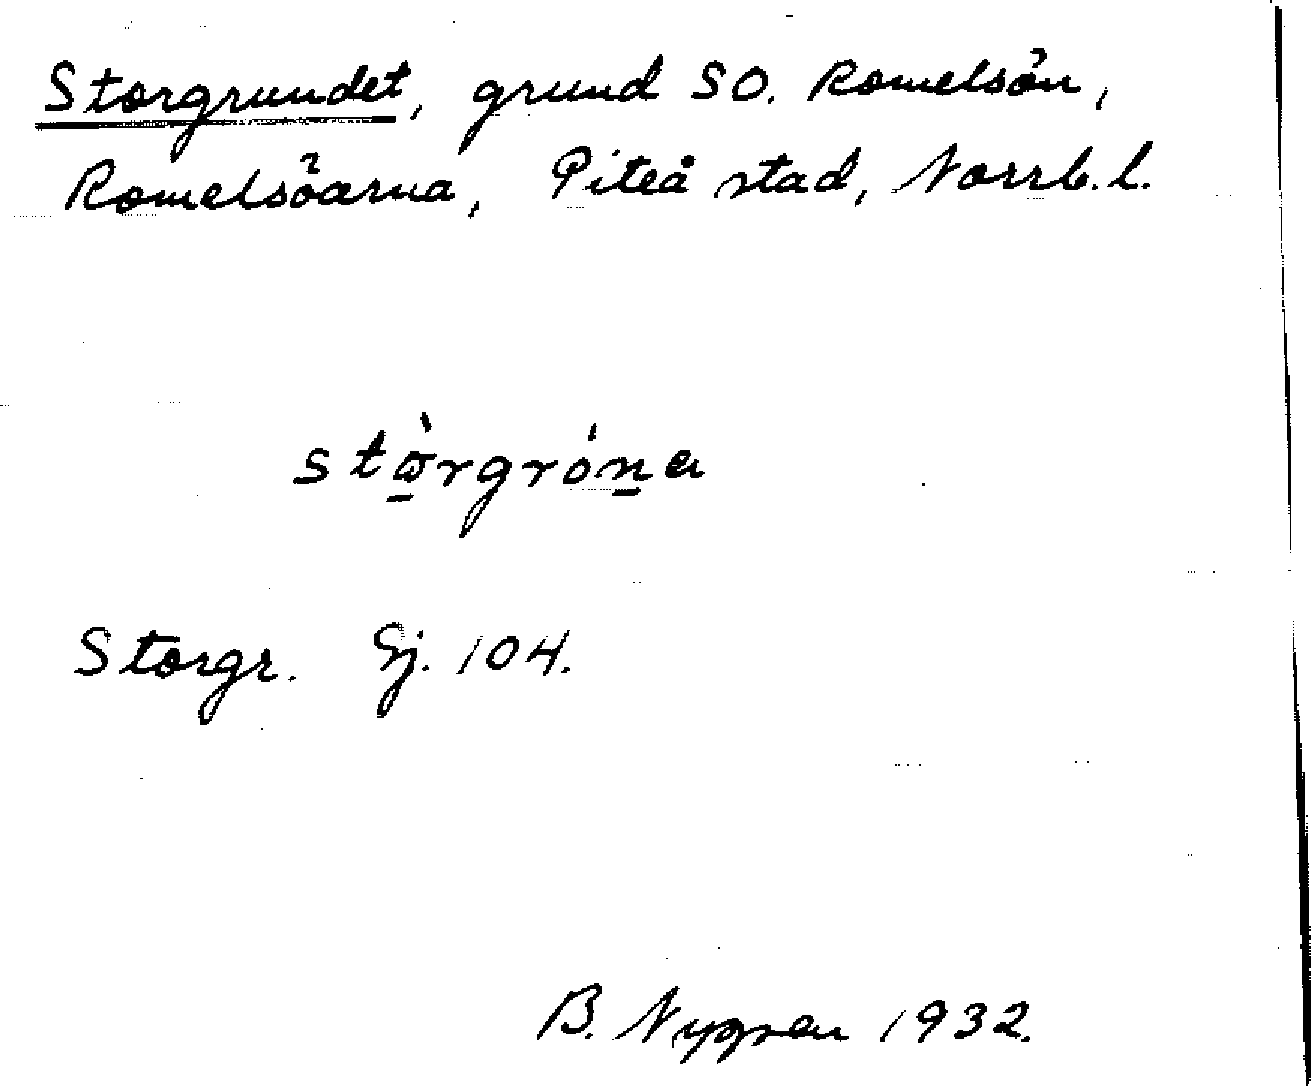 Storgrundet, grund SO. Romelsön,
Romelsöarna, Piteå stad, Norrb. l.
stὼ̲rgrón̲a
Storgr. Sj. 104.
B. Nygren 1932.